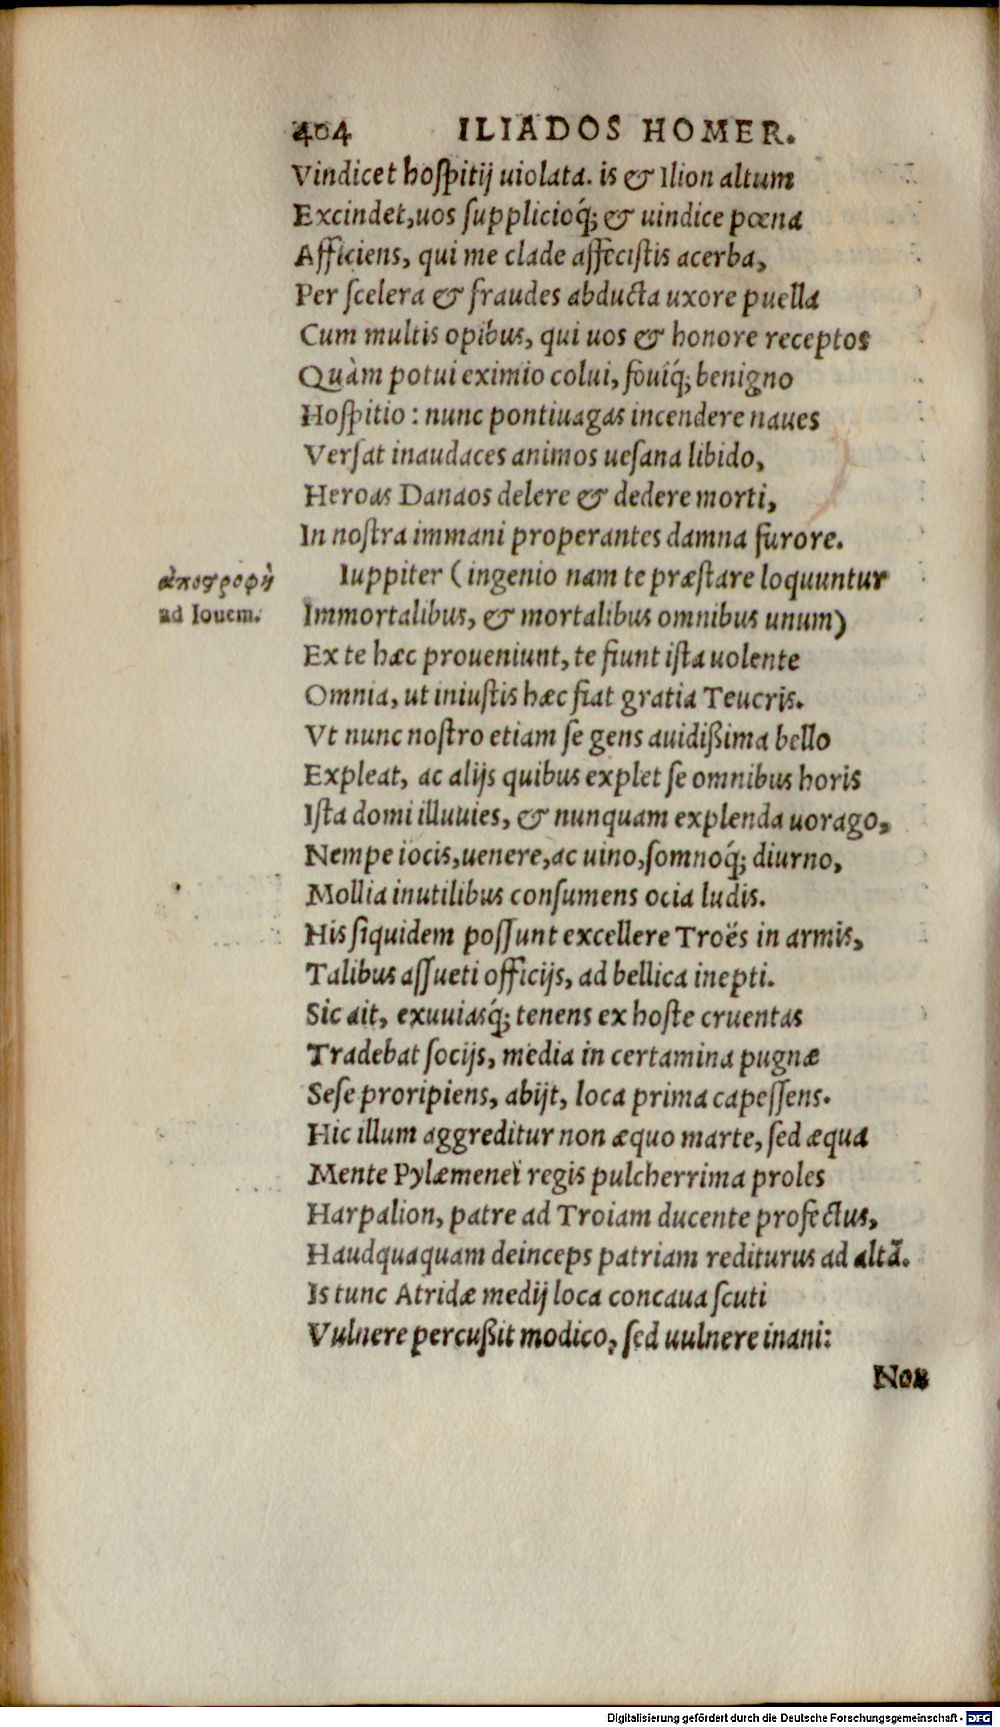 404 ILIADOS HOMER.
Vindicet hoſpitij uiolata. is & Ilion altum
Excindet, uos ſupplicioq́; & uindice pœna
Afficiens, qui me clade affeciſtis acerba,
Per ſcelera & fraudes abducta uxore puella
Cum multis opibus, qui uos & honore receptos
Quàm potui eximio colui, fouiq́; benigno
Hoſpitio: nunc pontiuagas incendere naues
Verſat inaudaces animos ueſana libido,
Heroas Danaos delere & dedere morti,
In noſtra immani properantes damna furore.
ἀποςροφὴ
ad Iouem.
Iuppiter (ingenio nam te præſtare loquuntur
Immortalibus, & mortalibus omnibus unum)
Ex te hæc proueniunt, te fiunt iſta uolente
Omnia, ut iniuſtis hæc fiat gratia Teucris.
Vt nunc noſtro etiam ſe gens auidißima bello
Expleat, ac alijs quibus explet ſe omnibus horis
Iſta domi illuuies, & nunquam explenda uorago,
Nempe iocis, uenere, ac uino, ſomnoq́; diurno,
Mollia inutilibus conſumens ocia ludis.
His ſiquidem poſſunt excellere Troës in armis,
Talibus aſſueti officijs, ad bellica inepti.
Sic ait, exuuiasq́; tenens ex hoſte cruentas
Tradebat ſocijs, media in certamina pugnæ
Seſe proripiens, abijt, loca prima capeſſens.
Hic illum aggreditur non æquo marte, ſed æqua
Mente Pylæmenei regis pulcherrima proles
Harpalion, patre ad Troiam ducente profectus,
Haudquaquam deinceps patriam rediturus ad altā.
Is tunc Atridæ medij loca concaua ſcuti
Vulnere percußit modico, ſed uulnere inani:
Nos
Digitalisierung gefördert durch die Deutsche Forschungsgemeinschaft - DFG